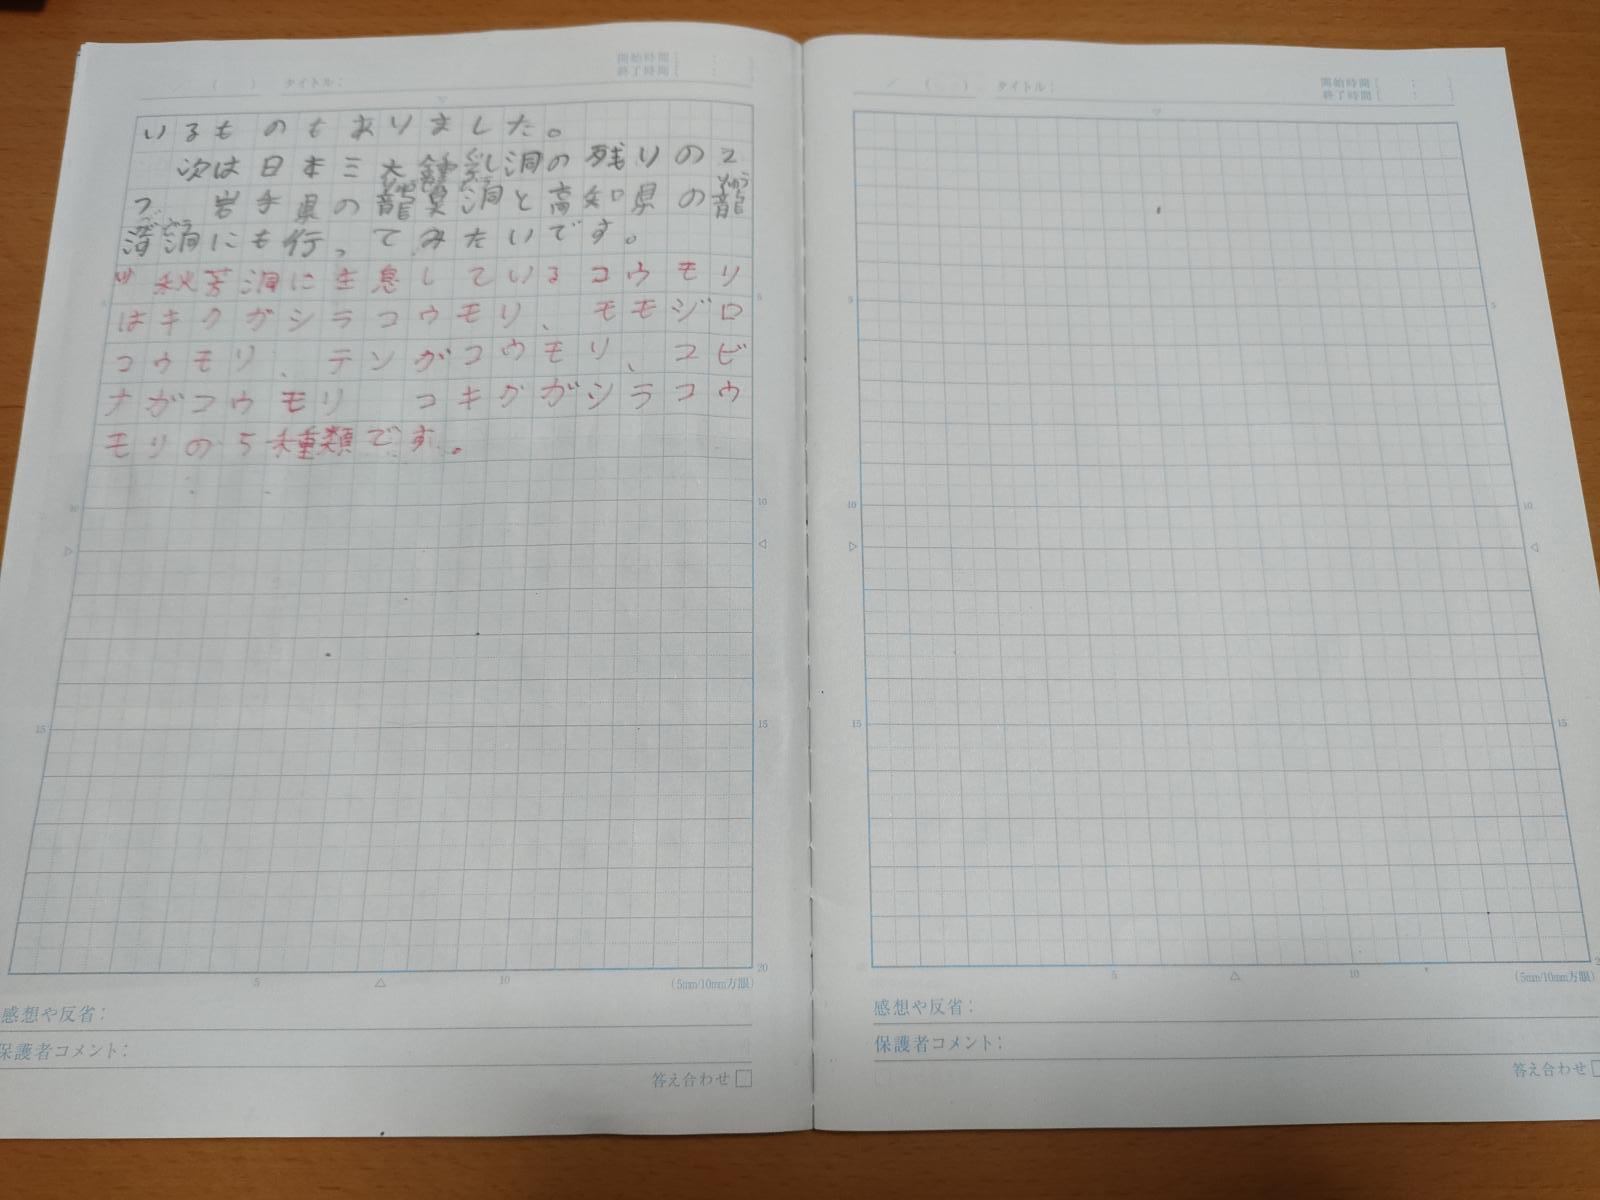 ／ （ ） タイトル：
開始時間［ ： ］
終了時間［ ： ］
いるものもありました。
次は日本三大鍾乳洞の残りの2
つ 岩手県の龍泉洞と高知県の龍
河洞にも行ってみたいです。
秋芳洞に生息しているコウモリ
はキクガシラコウモリ、モモジロ
コウモリ、テングコウモリ、ユビ
ナガコウモリ コキクガシラコウ
モリの5種類です。
5
5
10
10
15
15
20
5 10
（5mm/10mm方眼）
感想や反省：
保護者コメント：
答え合わせ
／ （ ） タイトル：
開始時間［ ： ］
終了時間［ ： ］
5
5
10
10
15
15
5 10
（5mm/10mm方眼）
感想や反省：
保護者コメント：
答え合わせ